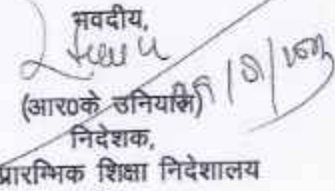 भवदीय,
(आर0के उनियाल)
निदेशक,
प्रारम्भिक शिक्षा निदेशालय